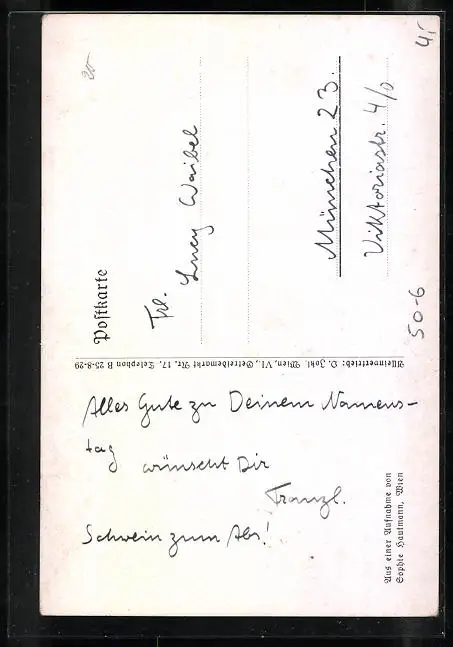 Postkarte
Frl.
Lucy Waibel
München 23.
Viktoriastr. 4/0
Alleinvertrieb: D. Johl, Wien, VI., Getreidemarkt Nr. 17, Telephon B 25-8-29
Alles Gute zu Deinem Namens-
tag
wünscht Dir
Franzl.
Schwein zum Abs!
Aus einer Aufnahme von
Sophie Haufmann, Wien
50-6
4,-
20